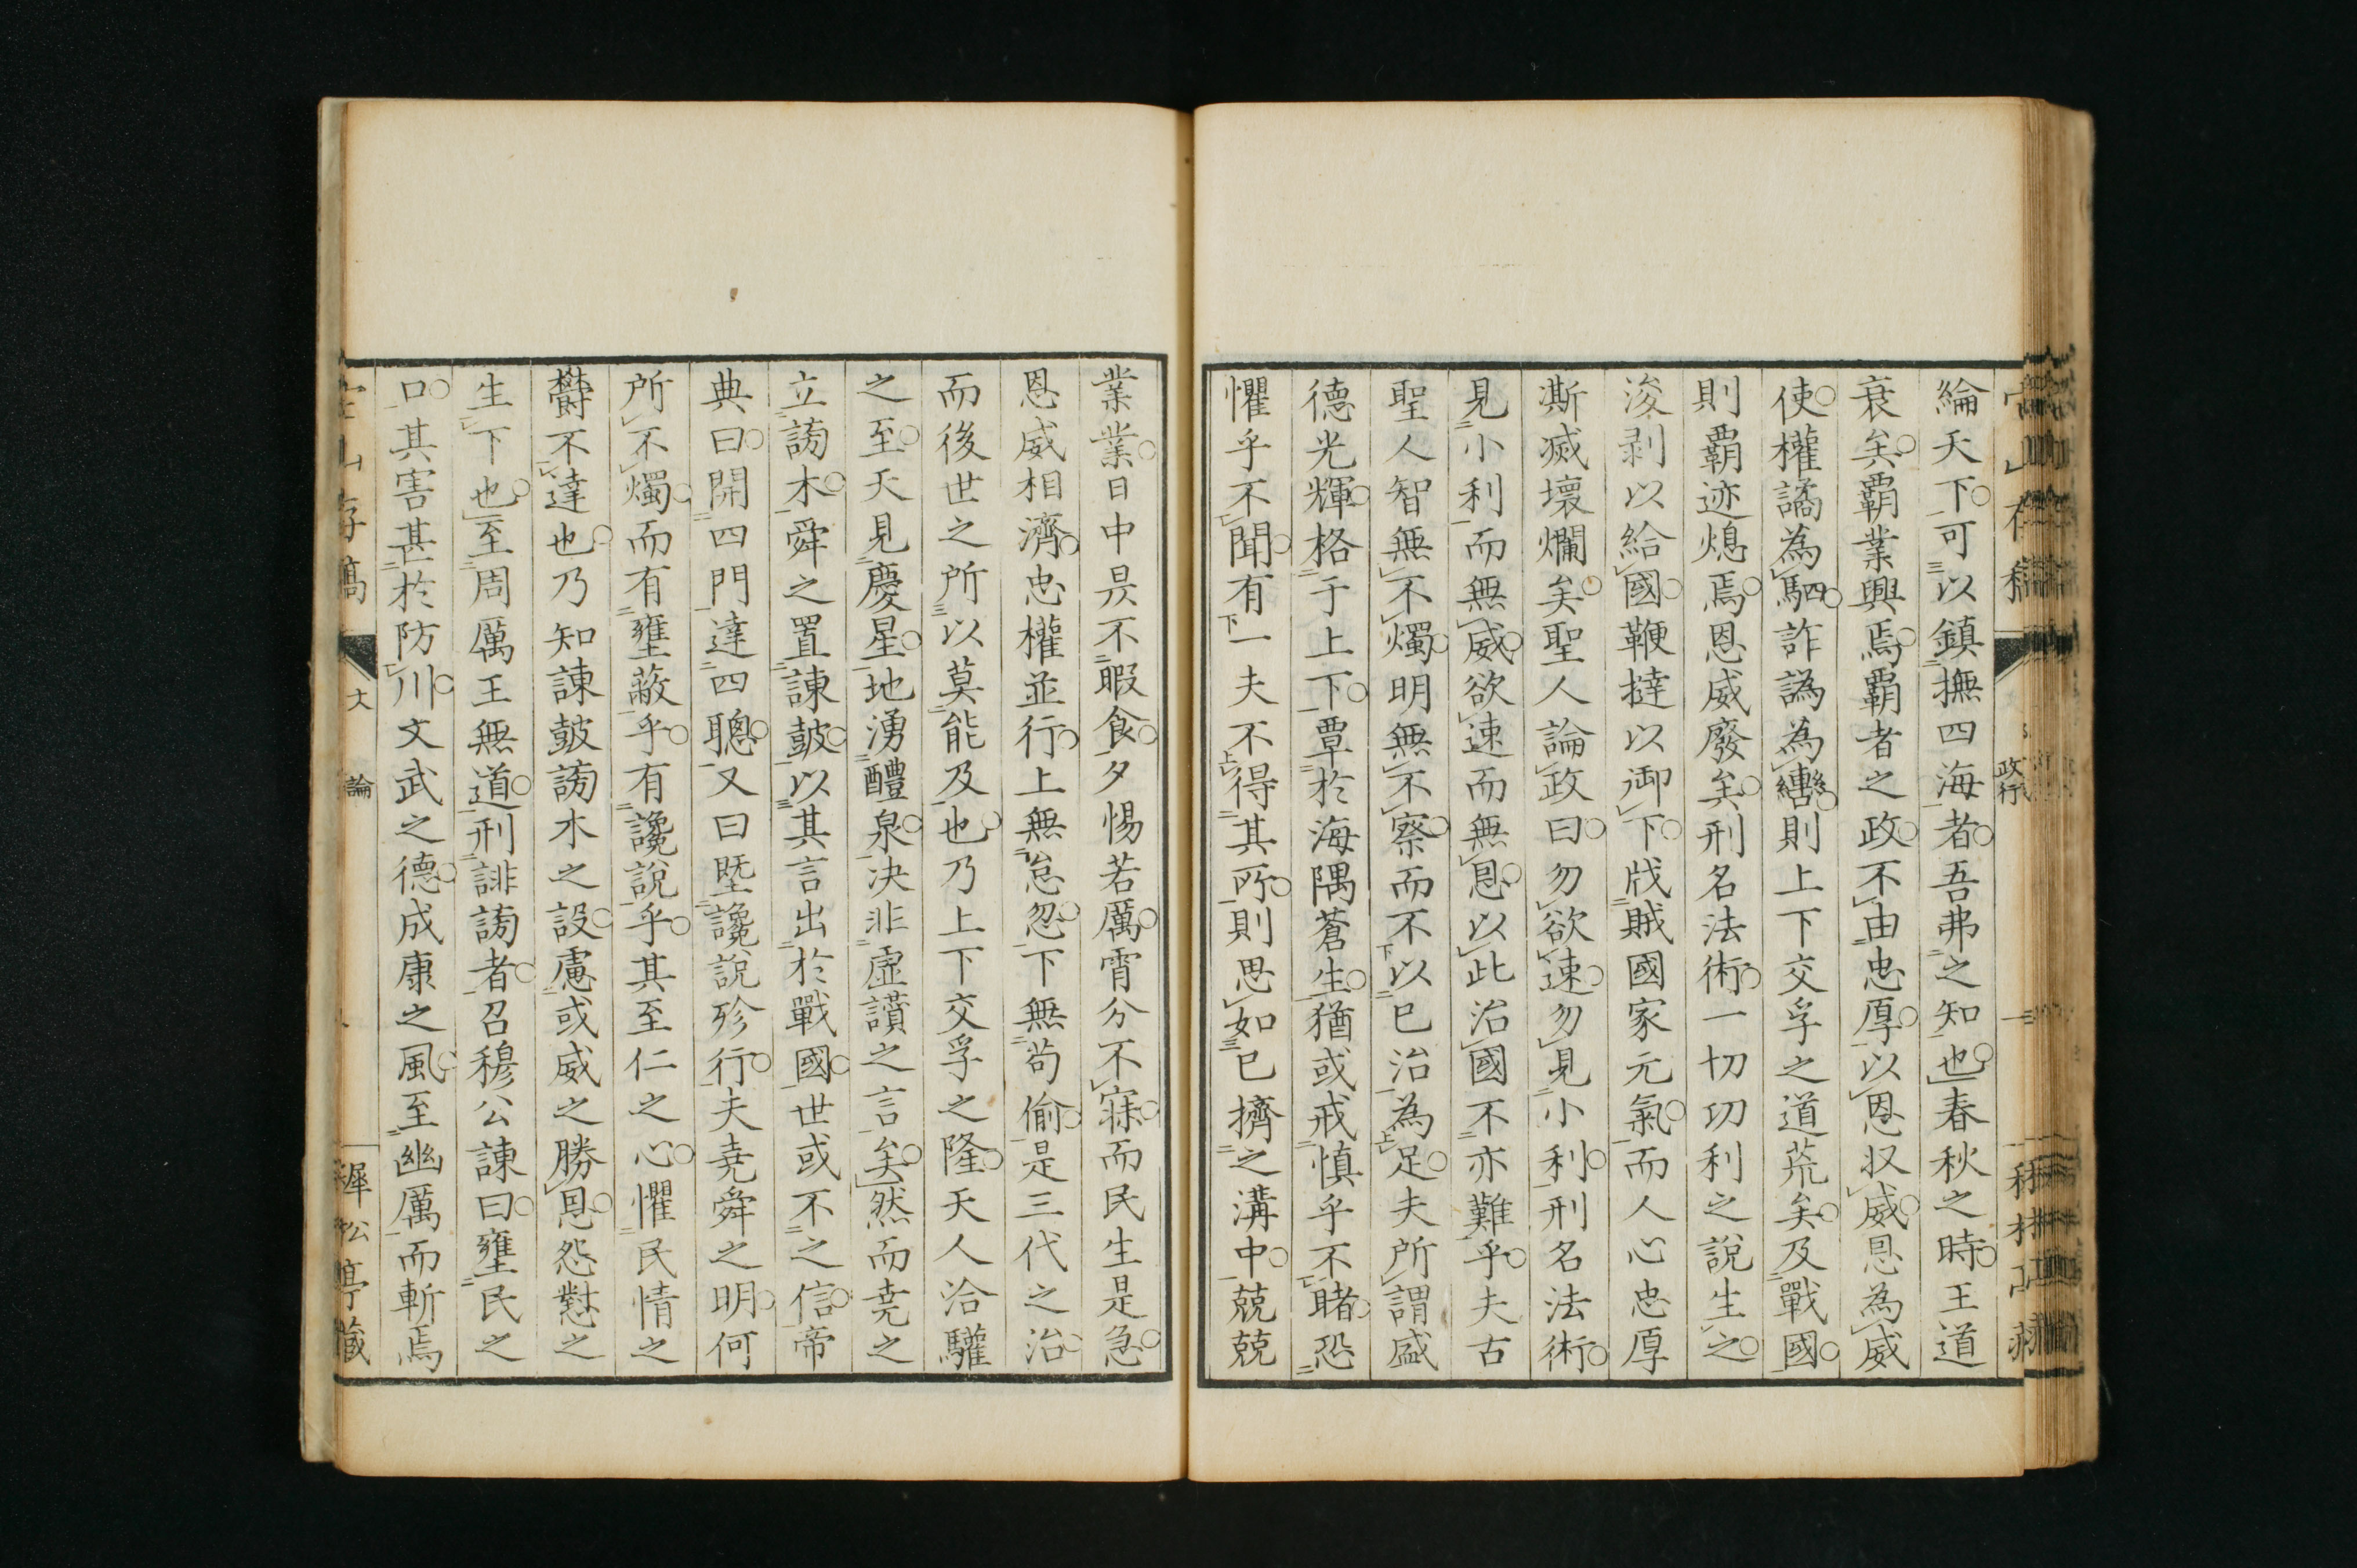 綸天下可以鎮撫四海者吾弗之知也春秋之時王道
衰矣覇業興焉覇者之政不由忠厚以恩収威恩為威
使權譎為駟詐譌為轡則上下交孚之道荒矣及戰國
則覇迹熄焉恩威廢矣刑名法術一切功利之說生之
浚剥以給國鞭撻以御下戕賊國家元氣而人心忠厚
澌滅壞爛矣聖人論政曰勿欲速勿見小利刑名法術
見小利而無威欲速而無恩以此治國不亦難乎夫古
聖人智無不燭明無不察而不以已治為足夫所謂盛
德光輝格于上下覃於海隅蒼生猶或戒慎乎不睹恐
懼乎不聞有一夫不得其所則思如已擠之溝中兢兢
業業日中昃不暇食夕惕若厲宵分不寐而民生是急
恩威相濟忠權並行上無怠忽下無苟偷是三代之治
而後世之所以莫能及也乃上下交孚之隆天人洽驩
之至天見慶星地湧醴泉決非虛讚之言矣然而堯之
立謗木舜之置諫鼓以其言出於戰國世或不之信帝
典曰開四門達四聰又曰堲讒說殄行夫堯舜之明何
所不燭而有壅蔽乎有讒說乎其至仁之心懼民情之
欝不達也乃知諫鼓謗木之設慮或威之勝恩怨懟之
生下也至周厲王無道刑誹謗者召穆公諫曰壅民之
口其害甚於防川文武之德成康之風至幽厲而斬焉
山存稿
論
犀松亭藏